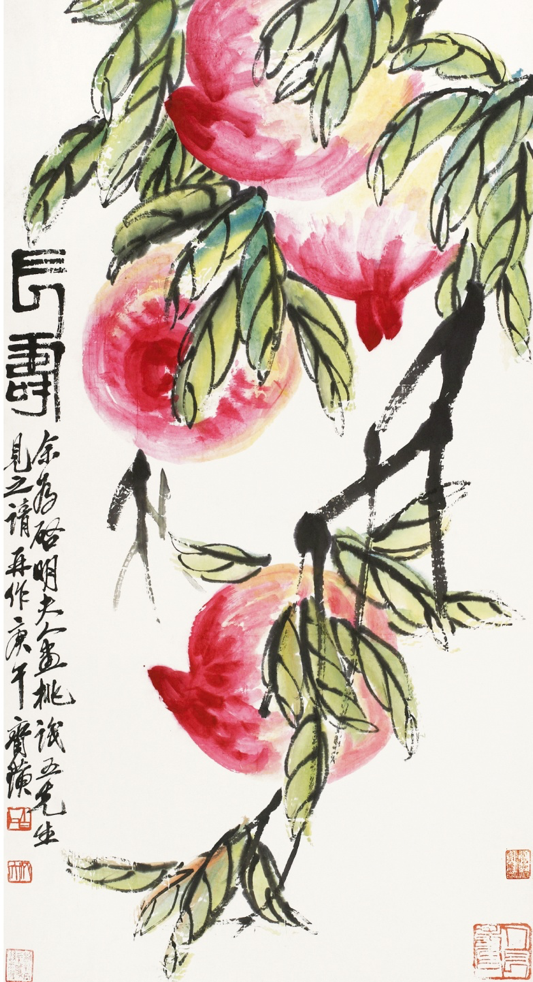 長壽
余為啓明夫人畫桃誐五先生
見之請再作庚午齊璜